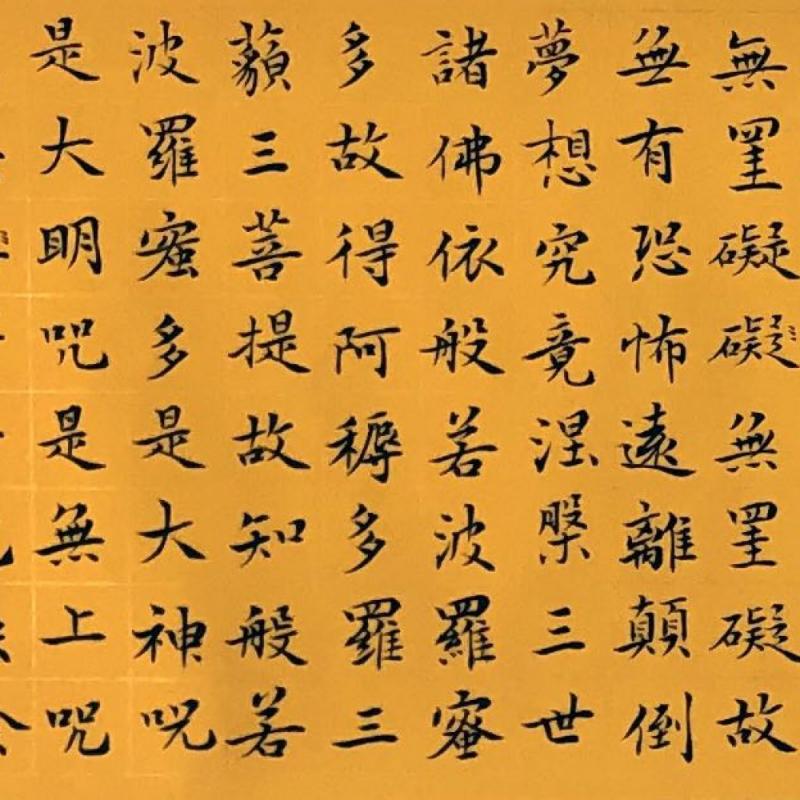 無罣礙礙無罣礙故
無有恐怖遠離顛倒
夢想究竟涅槃三世
諸佛依般若波羅蜜
多故得阿耨多羅三
藐三菩提故知般若
波羅蜜多是大神呪
是大明呪是無上呪